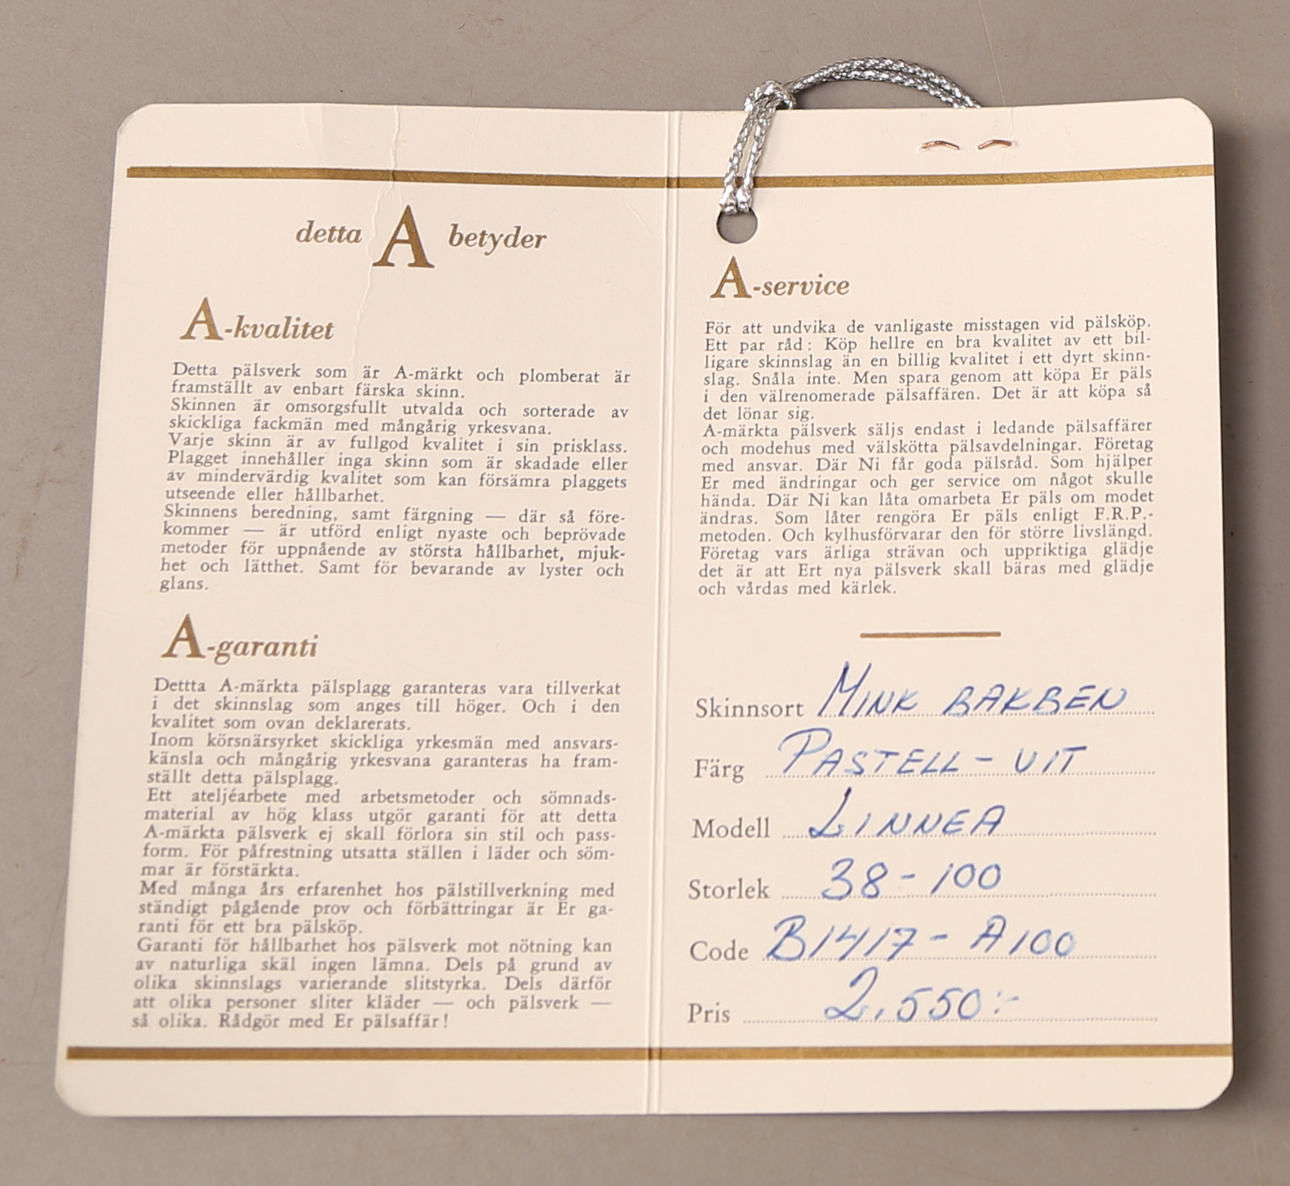 detta A betyder
A-kvalitet
Detta pälsverk som är A-märkt och plomberat är
framställt av enbart färska skinn.
Skinnen är omsorgsfullt utvalda och sorterade av
skickliga fackmän med mångårig yrkesvana.
Varje skinn är av fullgod kvalitet i sin prisklass.
Plagget innehåller inga skinn som är skadade eller
av mindervärdig kvalitet som kan försämra plaggets
utseende eller hållbarhet.
Skinnens beredning, samt färgning — där så före-
kommer — är utförd enligt nyaste och beprövade
metoder för uppnående av största hållbarhet, mjuk-
het och lätthet. Samt för bevarande av lyster och
glans.
A-garanti
Dettta A-märkta pälsplagg garanteras vara tillverkat
i det skinnslag som anges till höger. Och i den
kvalitet som ovan deklarerats.
Inom körsnärsyrket skickliga yrkesmän med ansvars-
känsla och mångårig yrkesvana garanteras ha fram-
ställt detta pälsplagg.
Ett ateljéarbete med arbetsmetoder och sömnads-
material av hög klass utgör garanti för att detta
A-märkta pälsverk ej skall förlora sin stil och pass-
form. För påfrestning utsatta ställen i läder och söm-
mar är förstärkta.
Med många års erfarenhet hos pälstillverkning med
ständigt pågående prov och förbättringar är Er ga-
ranti för ett bra pälsköp.
Garanti för hållbarhet hos pälsverk mot nötning kan
av naturliga skäl ingen lämna. Dels på grund av
olika skinnslags varierande slitstyrka. Dels därför
att olika personer sliter kläder — och pälsverk —
så olika. Rådgör med Er pälsaffär!
A-service
För att undvika de vanligaste misstagen vid pälsköp.
Ett par råd: Köp hellre en bra kvalitet av ett bil-
ligare skinnslag än en billig kvalitet i ett dyrt skinn-
slag. Snåla inte. Men spara genom att köpa Er päls
i den välrenomerade pälsaffären. Det är att köpa så
det lönar sig.
A-märkta pälsverk säljs endast i ledande pälsaffärer
och modehus med välskötta pälsavdelningar. Företag
med ansvar. Där Ni får goda pälsråd. Som hjälper
Er med ändringar och ger service om något skulle
hända. Där Ni kan låta omarbeta Er päls om modet
ändras. Som låter rengöra Er päls enligt F.R.P.-
metoden. Och kylhusförvarar den för större livslängd.
Företag vars ärliga strävan och uppriktiga glädje
det är att Ert nya pälsverk skall bäras med glädje
och vårdas med kärlek.
Skinnsort MINK BAKBEN
Färg PASTELL - VIT
Modell LINNEA
Storlek 38 - 100
Code B1417 - A100
Pris 2.550:-